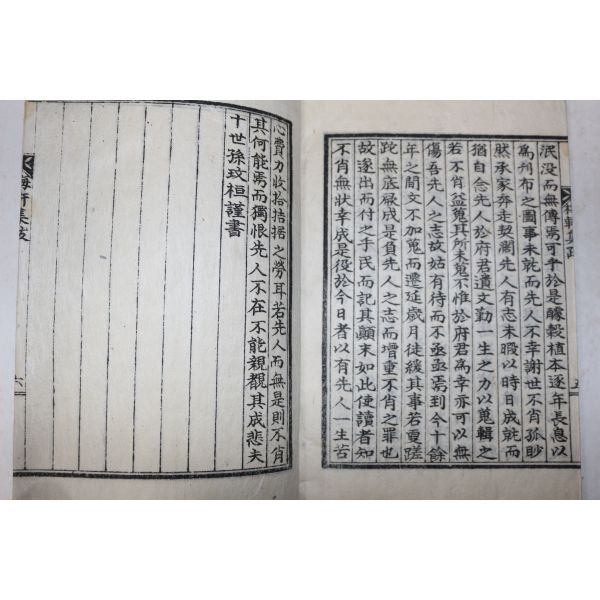 泯没而無傳焉可乎於是醵穀植本逐年長息以
爲刊布之圖事未乾而先人不幸謝世不肖孤眇
然承家奔走契濶先人有志未暇以時日成就而
猶自念先人於府君遺文勤一生之力以蒐輯之
若不肖益蒐其所未蒐不惟於府君爲幸亦可以無
傷吾先人之志故姑有待而不亟亟焉到今十餘
年之間文不加蒐而遷延歲月徒緩其事若重蹉
跎無底碌成是負先人之志而增重不肖之罪也
故遂出而付之手民而記其顛末如此使讀者知
不肖無狀幸成是役於今日者以有先人一生苦
心費力收拾拮据之勞耳若先人而無是則不肖
其何能焉而獨恨先人不在不能親覩其成悲夫
十世孫玟桓謹書
集跋
六